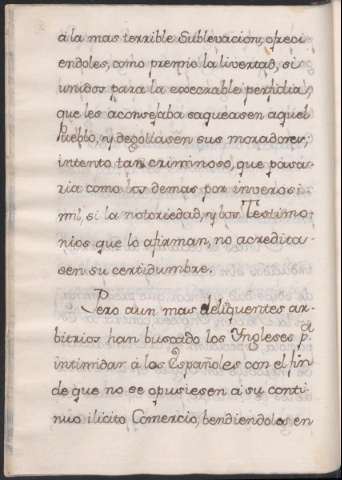 á la mas terrible Sublevacion, ofreci-
endoles, como premio la livertad, si
unidos para la execrable perfidia,
que les aconsejaba saqueasen aquel
Pueblo, y degollasen sus moradores;
intento tan criminoso, que pasa-
ria como los demas por inverosi-
mil, si la notoriedad, y los Testimo-
nios que lo afirman, no acredita-
sen su certidumbre.
Pero aun mas deliquentes ar-
bitrios han buscado los Yngleses pa.
intimidar á los Españoles con el fin
de que no se opusiesen á su conti-
nuo ilicito Comercio, bendiendolos en